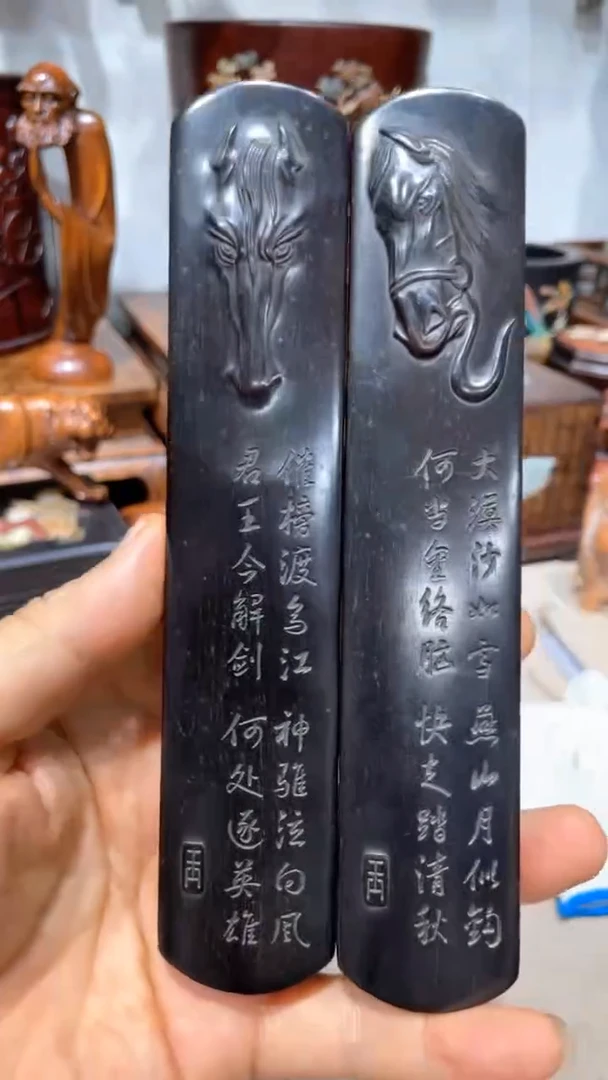 大漠沙如雪 燕山月似鈎
何当金络脑 快走踏清秋
催榜渡乌江 神骓泣向风
君王今解剑 何处逐英雄